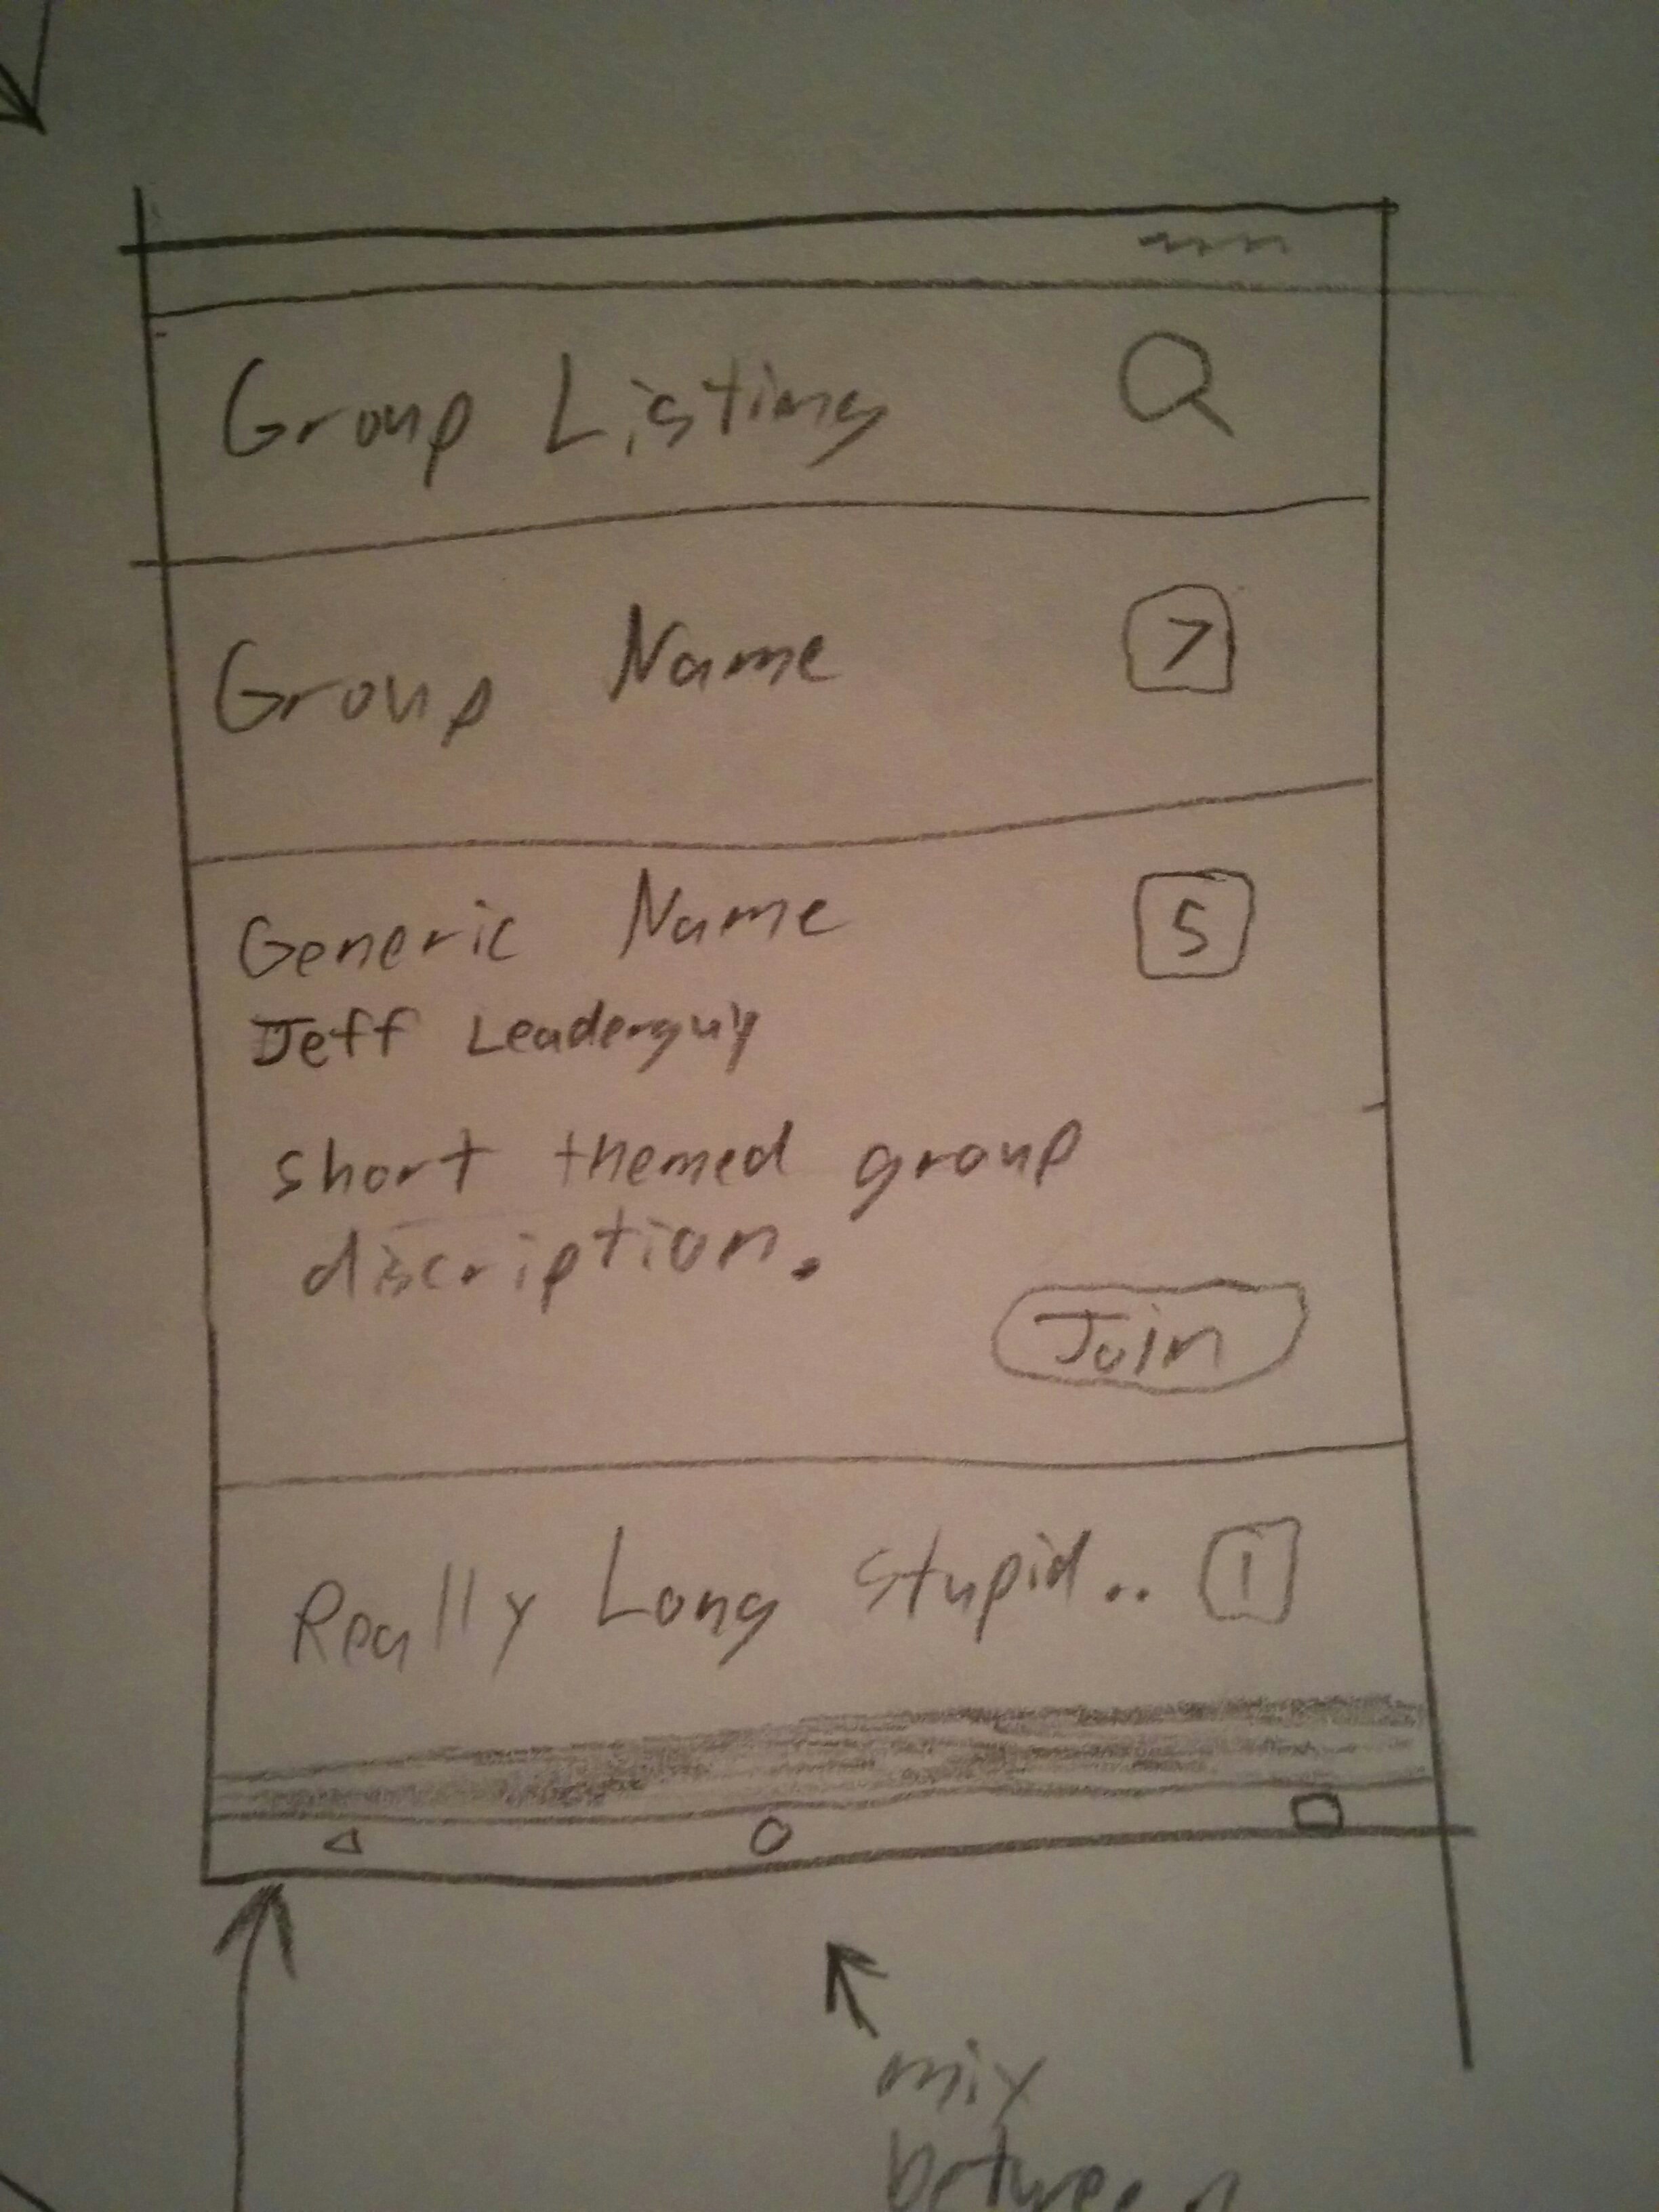 Group Listing
Group Name 7
Generic Name 5
Jeff Leaderguy
short themed group
discription.
Join
Really Long Stupid.. 1
mix
between